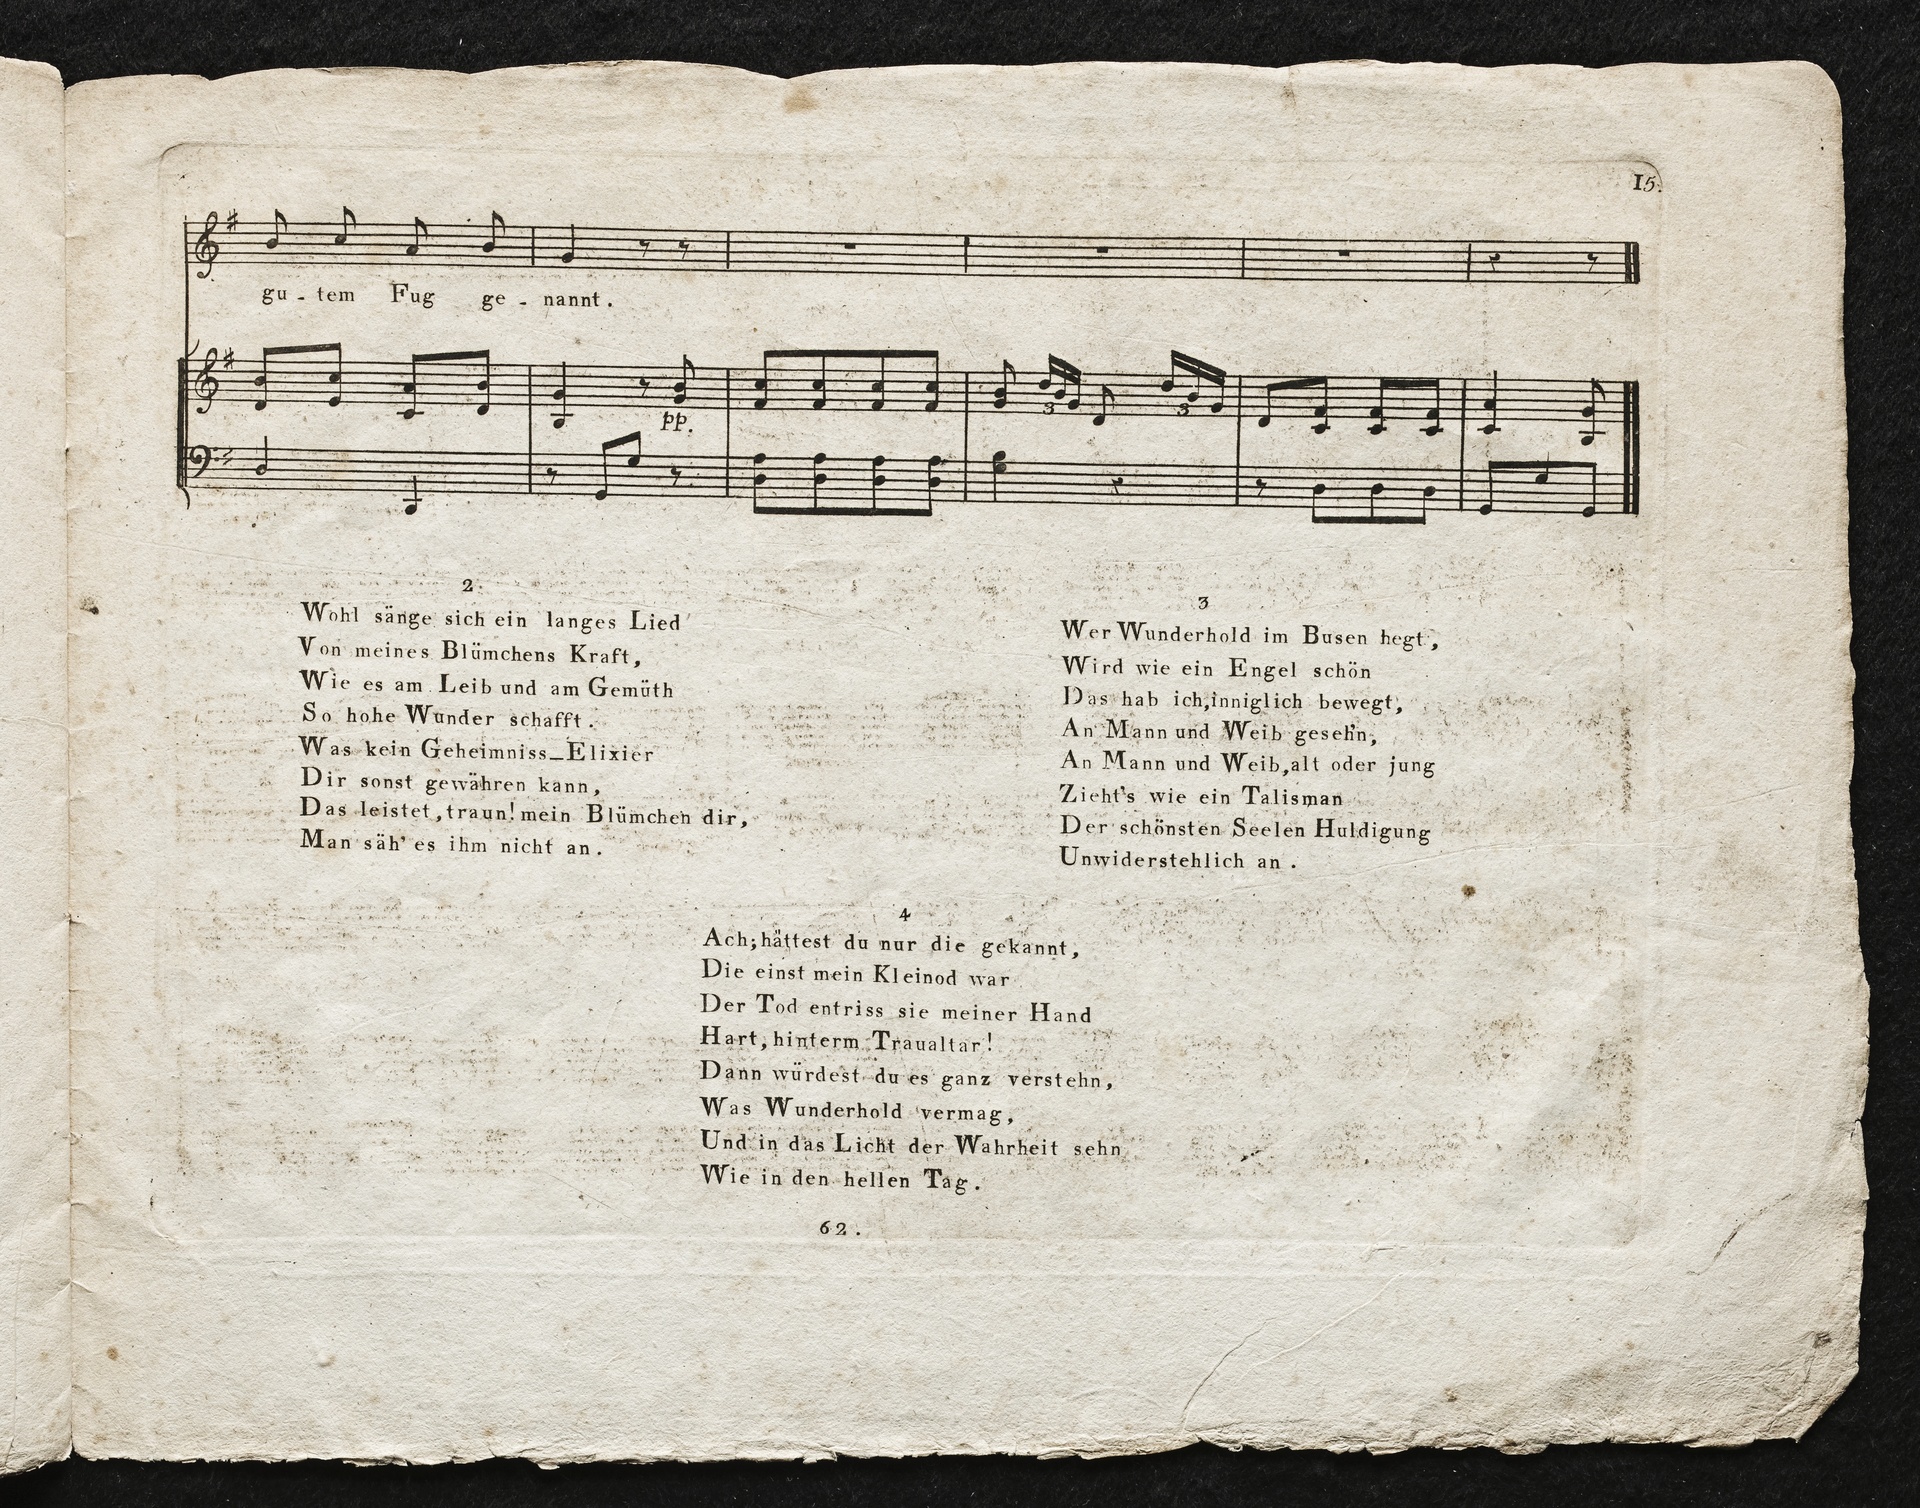 15.
gu - tem Fug ge - nannt.
pp.
3 3
2.
Wohl sänge sich ein langes Lied
Von meines Blümchens Kraft,
Wie es am Leib und am Gemüth
So hohe Wunder schafft.
Was kein Geheimniss_Elixier
Dir sonst gewähren kann,
Das leistet, traun! mein Blümchen dir,
Man säh' es ihm nicht an.
3
Wer Wunderhold im Busen hegt,
Wird wie ein Engel schön
Das hab ich, inniglich bewegt,
An Mann und Weib geseh'n,
An Mann und Weib, alt oder jung
Zieht's wie ein Talisman
Der schönsten Seelen Huldigung
Unwiderstehlich an.
4
Ach; hättest du nur die gekannt,
Die einst mein Kleinod war
Der Tod entriss sie meiner Hand
Hart, hinterm Traualtar!
Dann würdest du es ganz verstehn,
Was Wunderhold vermag,
Und in das Licht der Wahrheit sehn
Wie in den hellen Tag.
62.